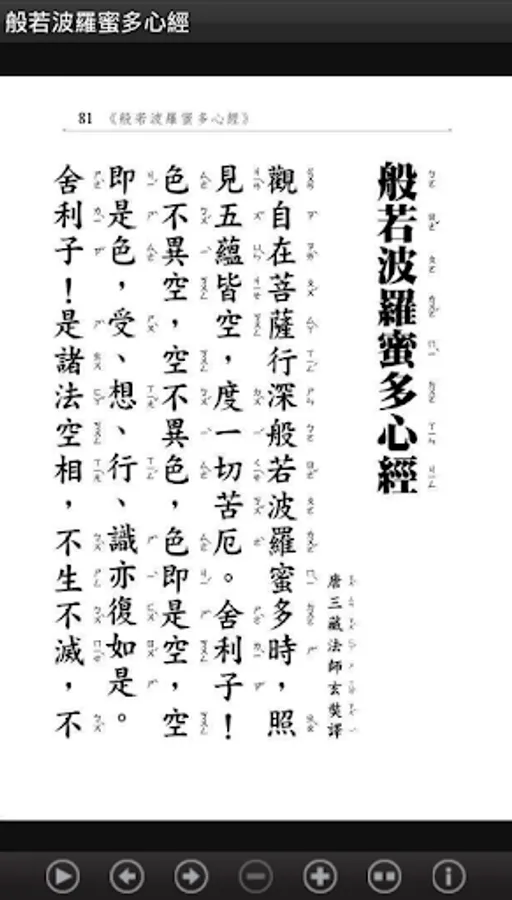 般若波羅蜜多心經
81 《般若波羅蜜多心經》
般若波羅蜜多心經
唐三藏法師玄奘譯
觀自在菩薩行深般若波羅蜜多時，照
見五蘊皆空，度一切苦厄。舍利子！
色不異空，空不異色，色即是空，空
即是色，受、想、行、識亦復如是。
舍利子！是諸法空相，不生不滅，不